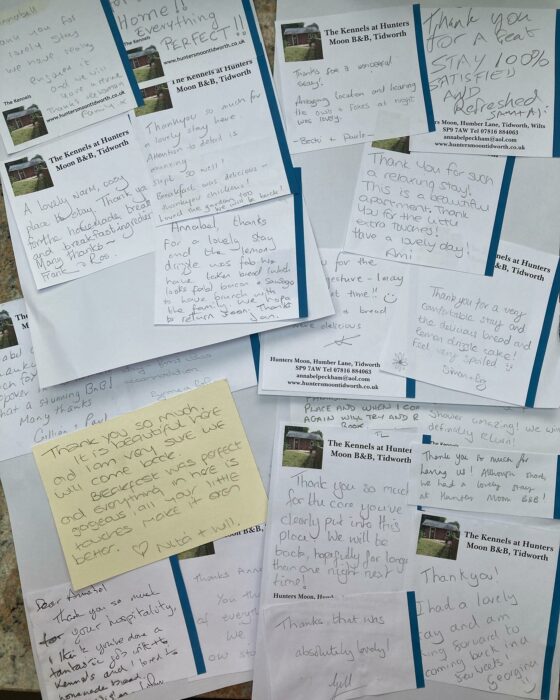 Annabel
lovely stay
we have
The Kennels
www.huntersmoontidworth.co.uk
Home!!
Everything
PERFECT!!
www.huntersmoontidworth.co.uk
The Kennels at Hunters
Moon B&B, Tidworth
Thankyou so much for
lovely stay here
Attention to detail is
amazing
Slept so well!
Breakfast was delicious -
Loved the
we will be back!
The Kennels at Hunters
Moon B&B, Tidworth
A lovely warm, cosy
place to stay. Thank you
for the homemade bread
and breakfasting
Many thanks
Frank Ros.
Annabel, thanks
for a lovely stay
and the lemon
drizzle was fab. We
have taken bread which
looks fab! bacon & sausage
to have brunch with
the family. We hope
to return soon. Thanks
The Kennels at Hunters
Moon B&B, Tidworth
Thanks for a wonderful
stay!
Amazing location and hearing
the owls & foxes at night
was lovely.
Thank you
for a great
STAY 100%
SATISFIED
AND
Refreshed
Hunters Moon, Humber Lane, Tidworth, Wilts
SP9 7AW Tel 07816 884063
annabelpeckham@aol.com
www.huntersmoontidworth.co.uk
Thank you for such
a relaxing stay!
This is a beautiful
apartment. Thank
you for the little
extra touches!
Have a lovely day!
Ami
you for the
gesture
at time!!
a bread
were delicious
Hunters Moon, Humber Lane, Tidworth
SP9 7AW Tel 07816 884063
annabelpeckham@aol.com
www.huntersmoontidworth.co.uk
at Hunters
Tidworth
Thankyou for a very
comfortable stay and
the delicious bread and
lemon drizzle cake!
Feel very spoiled
a stunning B&B!
Many thanks
Gillian & Paul
accommodation
Thank you so much
It is beautiful here
and I am very sure we
will come back.
Breakfast was perfect
and everything in here is
gorgeous, all your little
touches make it even
better.
+ Will.
PLACE AND WHEN I COME
AGAIN WILL TRY AND
BOOK
Shower amazing! We will
definitely return!
The Kennels at Hunters
Moon B&B, Tidworth
Thank you so much
for the care you've
clearly put into this
place. We will be
back, hopefully for longer
than one night next
time!
Hunters Moon,
Thank you so much for
having us! Although short,
we had a lovely stay
at Hunters Moon B&B!
The Kennels at Hunters
Moon B&B, Tidworth
Thankyou!
I had a lovely
stay and am
looking forward to
coming back in a
few weeks
Georgina
Thanks, that was
absolutely lovely!
Dear Annabel
Thank you so much
for your hospitality.
I think you've done a
fantastic job with the
Kennels and I loved the
homemade bread.
Hunters
Tidworth
Thanks
You
of every
We